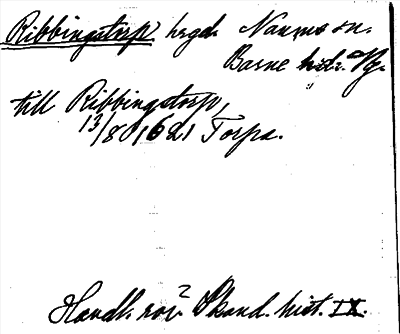 Ribbingstorp hrgd. Naums sn.
Barne hd. Vg.
till Ribbingstorp,
13/8 1621 Torpa.
Handl. rör. Skand. hist. IX.